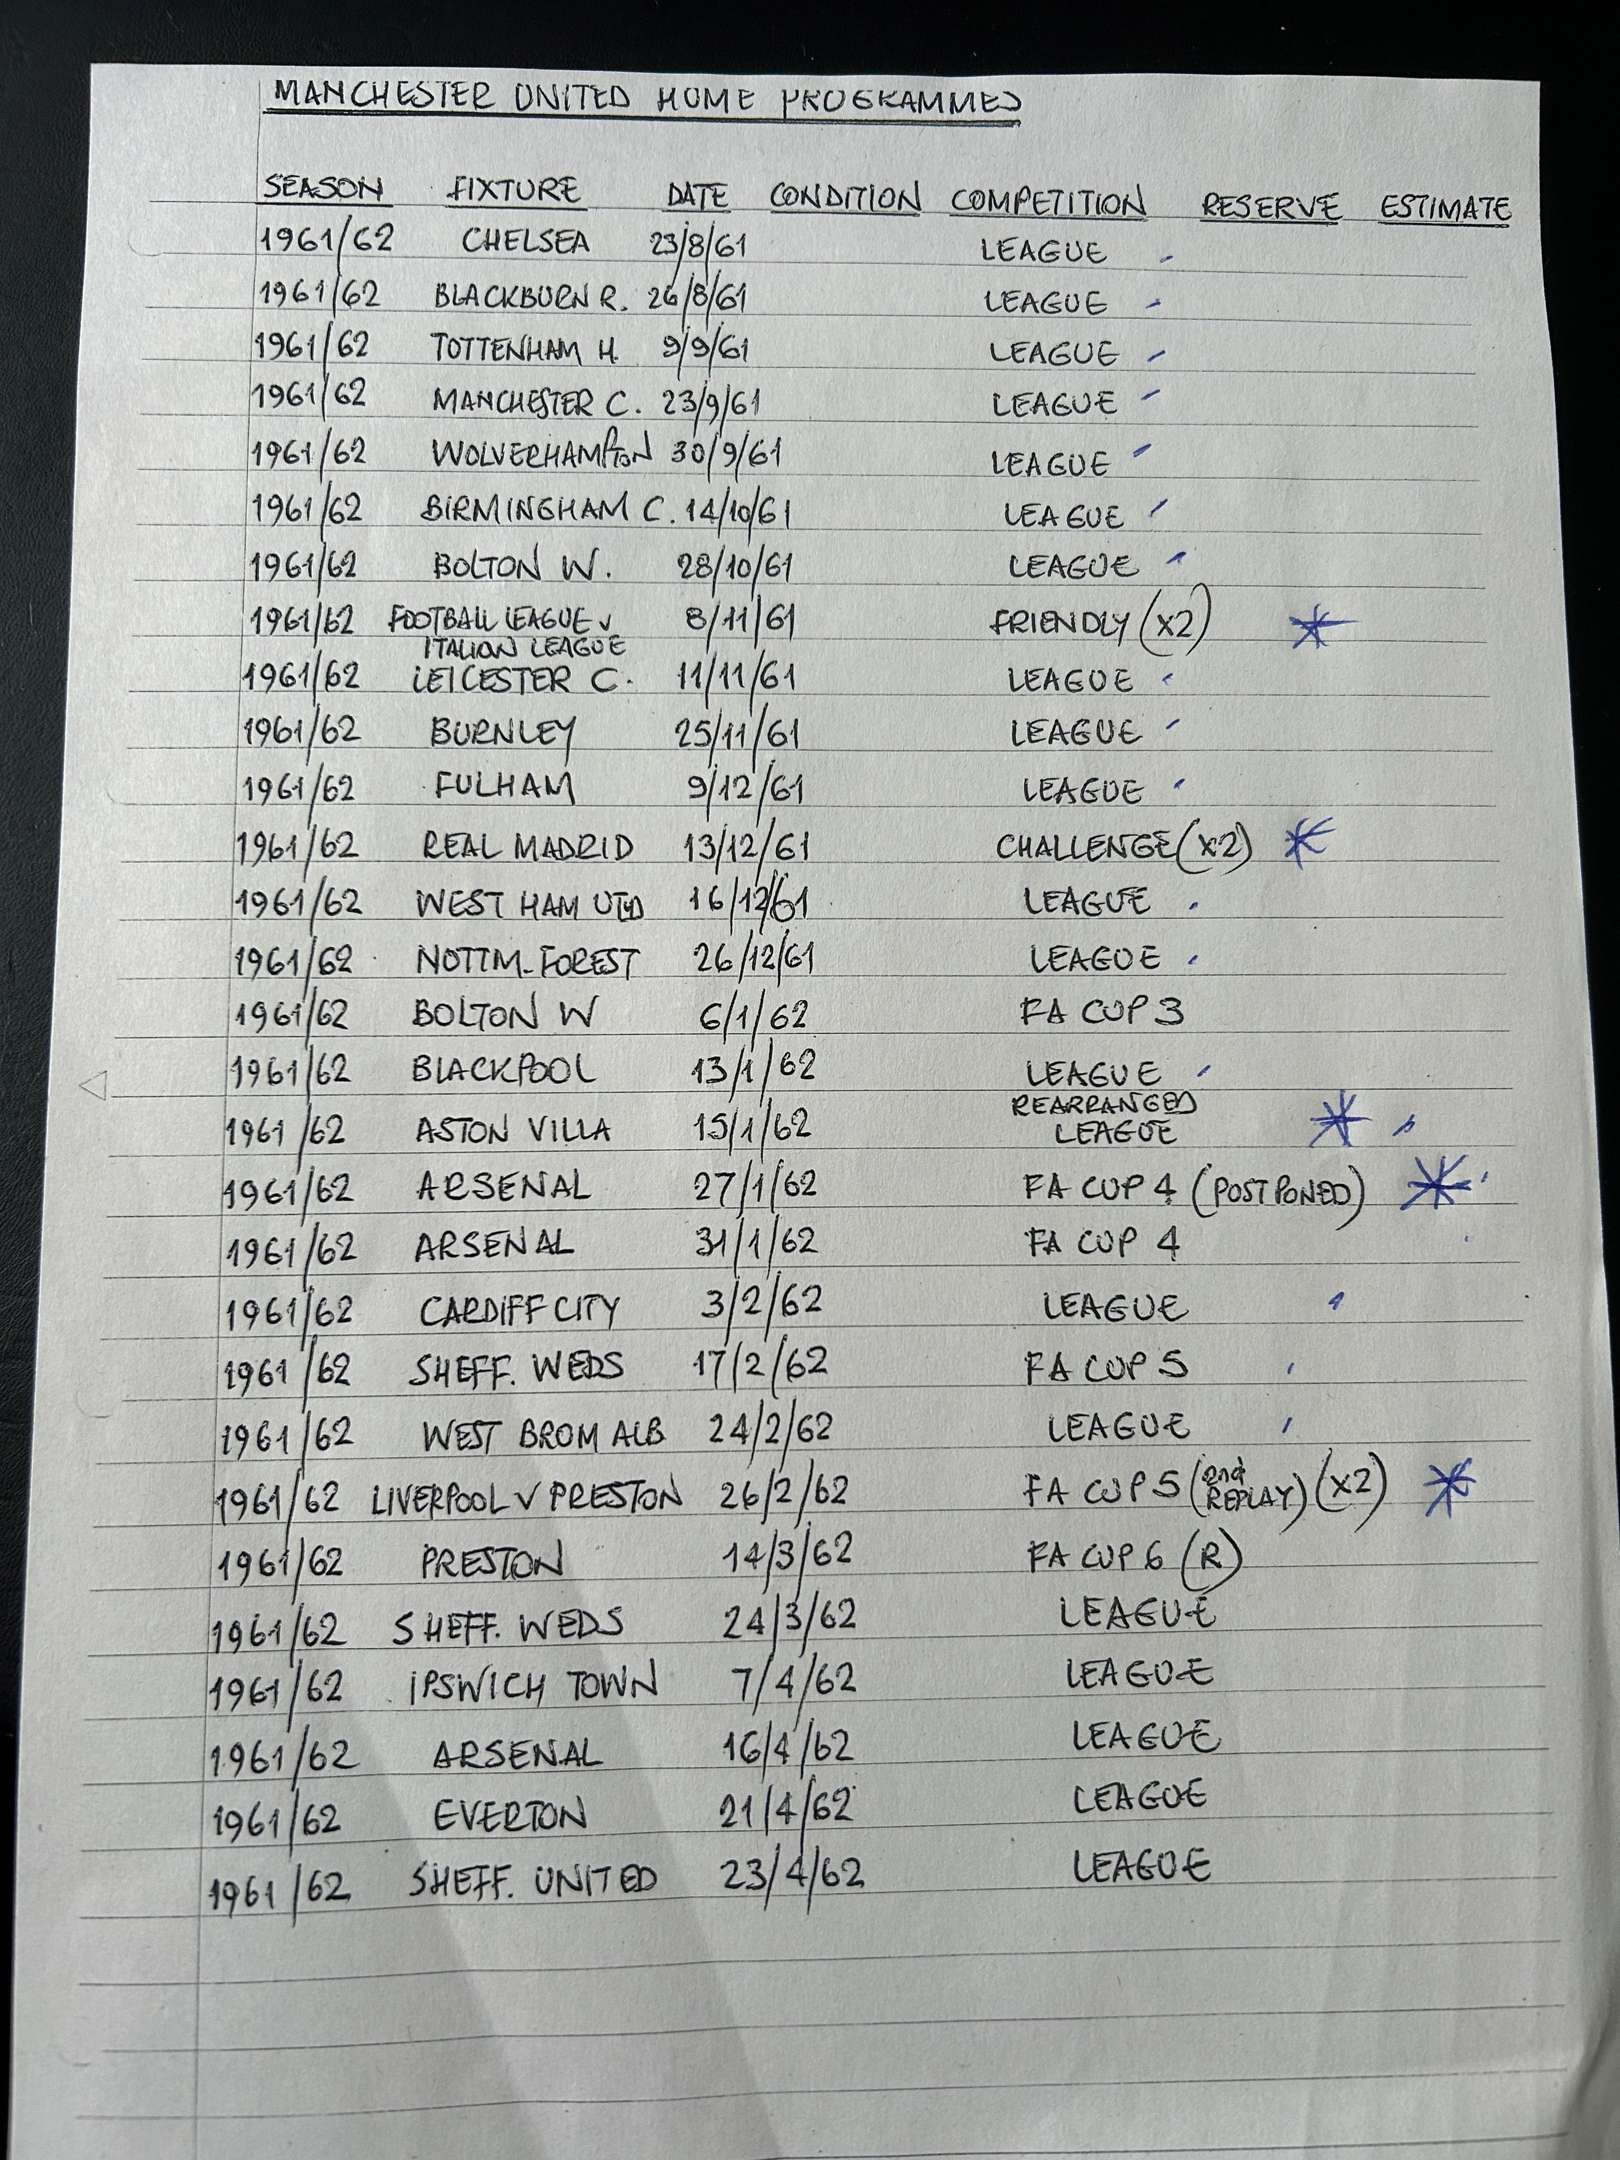 MANCHESTER UNITED HOME PROGRAMMES
SEASON FIXTURE DATE CONDITION COMPETITION RESERVE ESTIMATE
1961/62 CHELSEA 23/8/61 LEAGUE
1961/62 BLACKBURN R. 26/8/61 LEAGUE
1961/62 TOTTENHAM H. 9/9/61 LEAGUE
1961/62 MANCHESTER C. 23/9/61 LEAGUE
1961/62 WOLVERHAMPTON 30/9/61 LEAGUE
1961/62 BIRMINGHAM C. 14/10/61 LEAGUE
1961/62 BOLTON W. 28/10/61 LEAGUE
1961/62 FOOTBALL LEAGUE v 8/11/61 FRIENDLY (X2)
ITALIAN LEAGUE
1961/62 LEICESTER C. 11/11/61 LEAGUE
1961/62 BURNLEY 25/11/61 LEAGUE
1961/62 FULHAM 9/12/61 LEAGUE
1961/62 REAL MADRID 13/12/61 CHALLENGE (X2)
1961/62 WEST HAM UTD 16/12/61 LEAGUE
1961/62 NOTTM. FOREST 26/12/61 LEAGUE
1961/62 BOLTON W 6/1/62 FA CUP 3
1961/62 BLACKPOOL 13/1/62 LEAGUE
REARRANGED
1961/62 ASTON VILLA 15/1/62 LEAGUE
1961/62 ARSENAL 27/1/62 FA CUP 4 (POSTPONED)
1961/62 ARSENAL 31/1/62 FA CUP 4
1961/62 CARDIFF CITY 3/2/62 LEAGUE
1961/62 SHEFF. WEDS 17/2/62 FA CUP 5
1961/62 WEST BROM ALB 24/2/62 LEAGUE
1961/62 LIVERPOOL v PRESTON 26/2/62 FA CUP 5 (2nd REPLAY) (X2)
1961/62 PRESTON 14/3/62 FA CUP 6 (R)
1961/62 SHEFF. WEDS 24/3/62 LEAGUE
1961/62 IPSWICH TOWN 7/4/62 LEAGUE
1961/62 ARSENAL 16/4/62 LEAGUE
1961/62 EVERTON 21/4/62 LEAGUE
1961/62 SHEFF. UNITED 23/4/62 LEAGUE